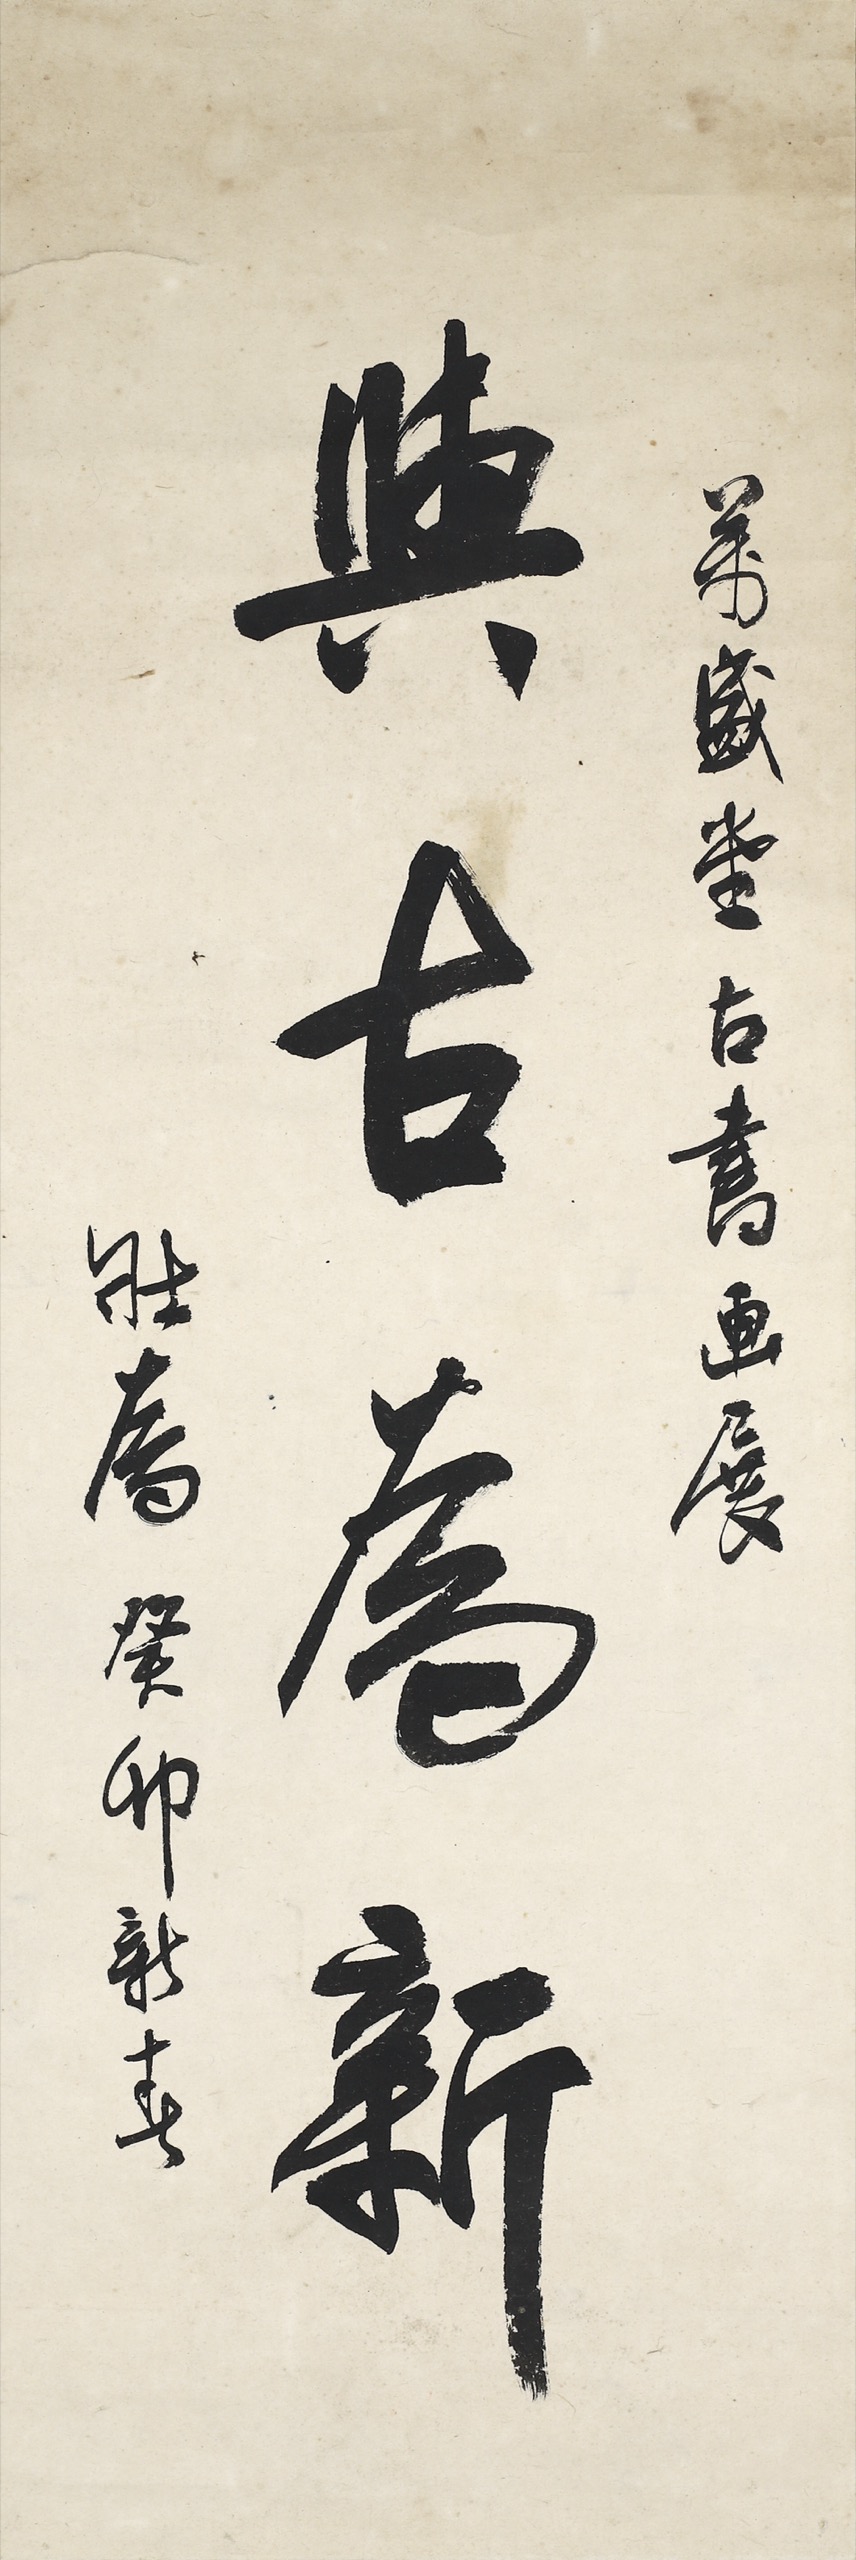 萬盛堂古書画展
與古為新
壯為 癸卯新春